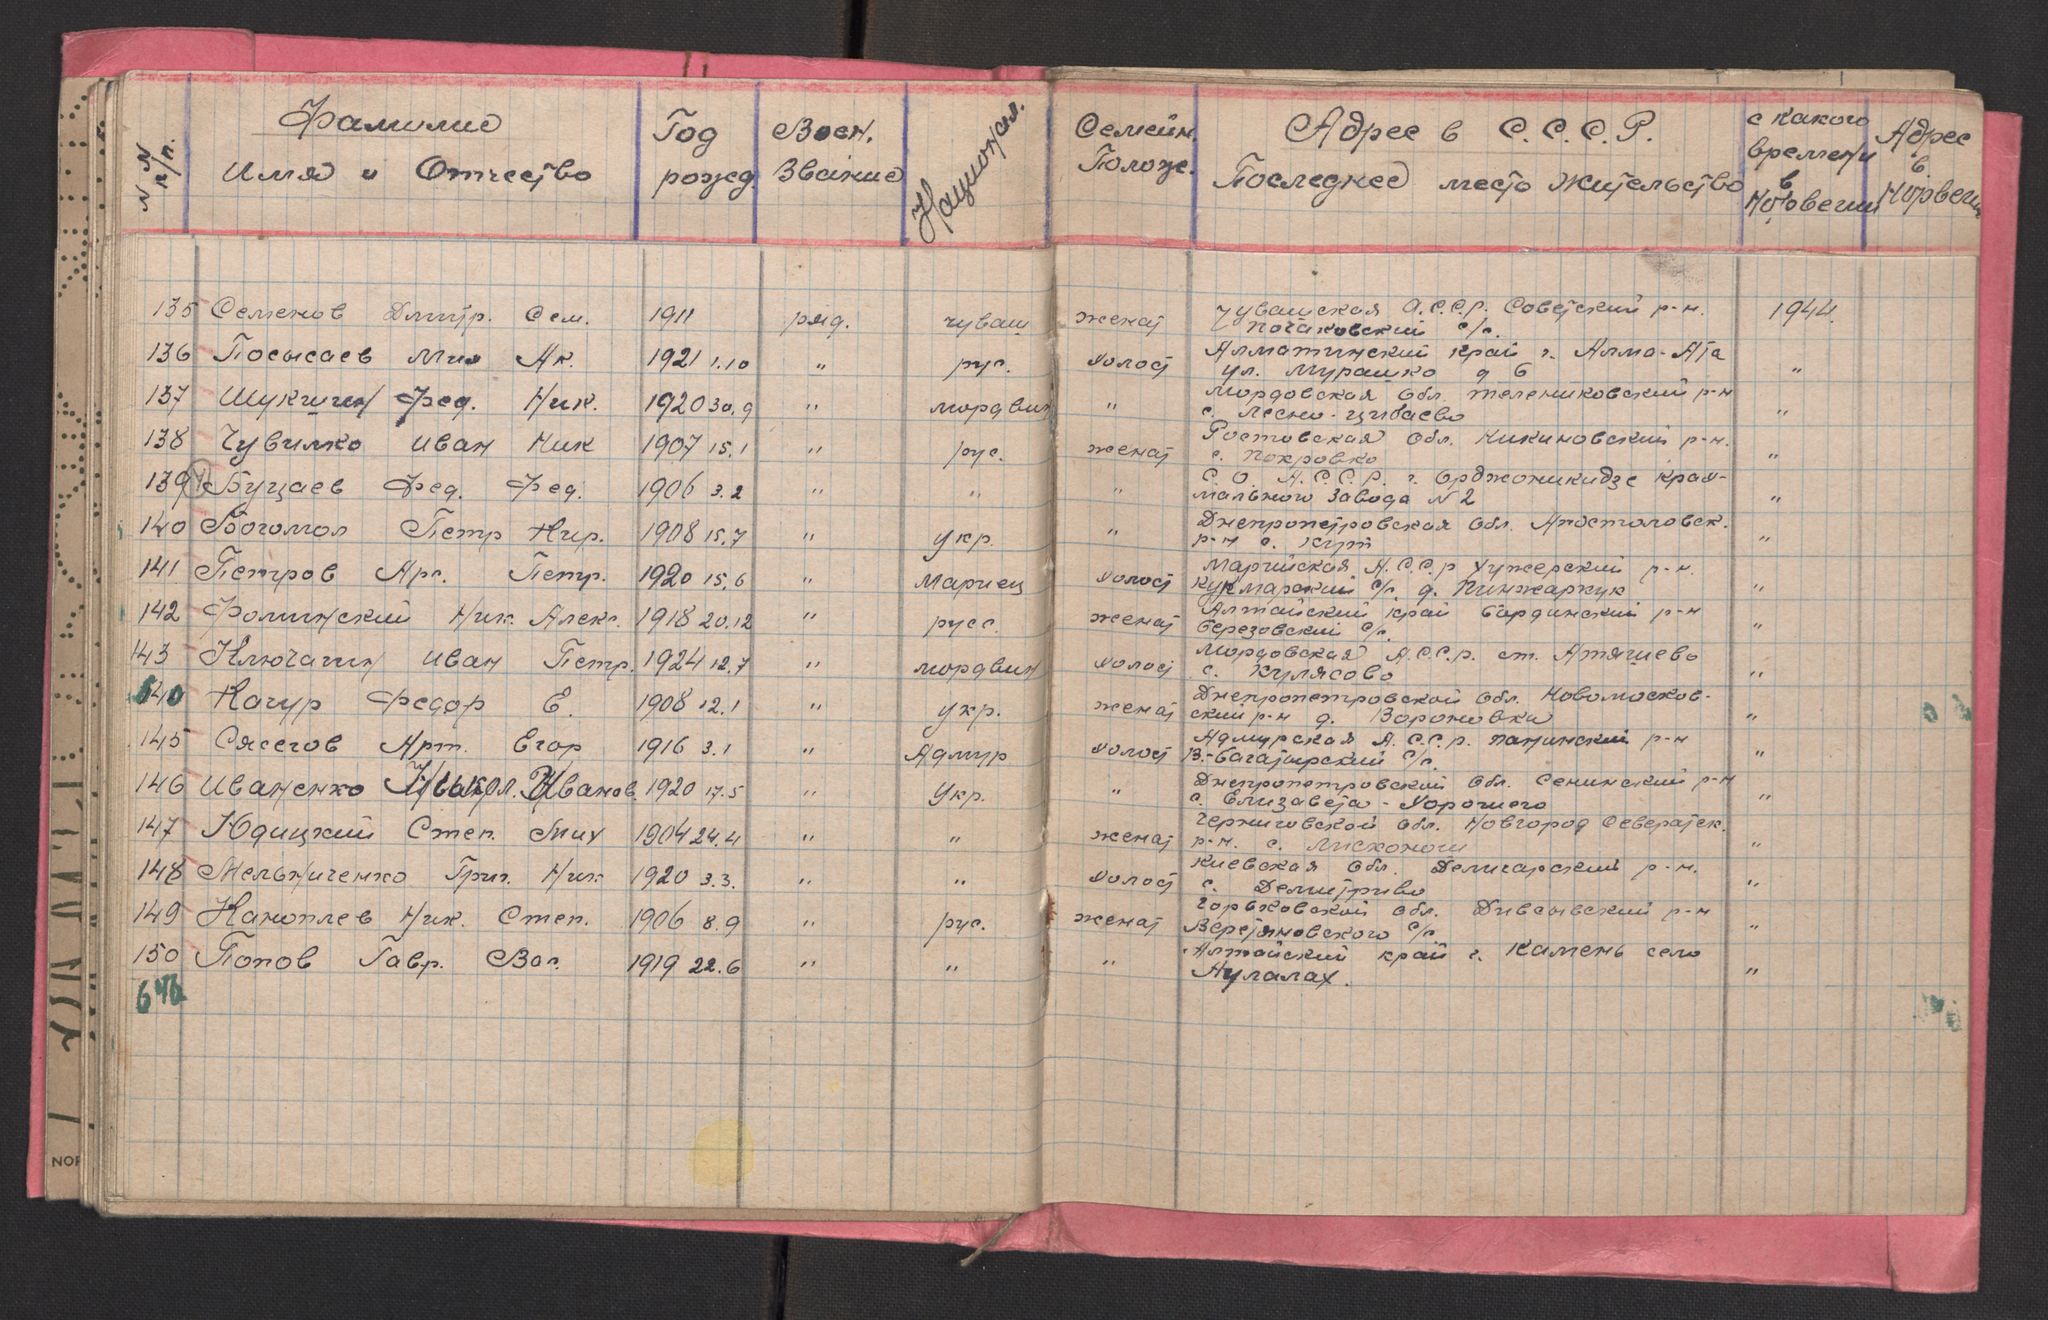 N N п/п. Фамилие Имя и Отчество Год рожд. Воен. Звание Национал. Семейн. Полож. Адрес в С.С.С.Р. Последнее место жительство с какого времени в Норвегии Адрес в Норвегии
135 Семенов Дмитр. Сем. 1911 ряд. чуваш женат Чувашская А.С.С.Р. Советский р-н. 1944.
Почаковский с/с.
136 Посысаев Мих Ак. 1921 1.10 " рус. холост Алматинский край г. Алма-Ата
ул. Мурашко д 6 "
137 Шукшин Фед. Ник. 1920 30.9 " мордвин " Мордовская Обл. Телениковский р-н
с. Лесно-Цибаево "
138 Чувилко Иван Ник 1907 15.1 " рус. женат Ростовская Обл. Кикиновский р-н.
с. Покровко "
139 Буцаев Фед. Фед. 1906 3.2 " " " С.О.А.С.С.Р. г. Орджоникидзе крах-
мального Завода N 2 "
140 Богомол Петр Кир. 1908 15.7 " укр. " Днепропетровская Обл. Апостоловск.
р-н с. Кут "
141 Петров Арс. Петр. 1920 15.6 " Мариец холост Марийская А.С.С.Р Хужерский р-н.
Кукмарский с/с. д. Пинжаркук "
142 Фоминский Ник. Алекс. 1918 20.12 " русс. женат Алтайский край Бардинский р-н
Березовский с/с. "
143 Ключагин Иван Петр. 1924 12.7 " мордвин холост Мордовская А.С.С.р. ст. Атяшево
с. Кулясово "
640 Качур Федор Е. 1908 12.1 " укр. женат Днепропетровской Обл. Новомосков-
ский р-н д. Вороновка "
145 Сясегов Арт. Егор 1916 3.1 " Адмур холост Адмурская А.С.С.р. Пачинский р-н
В.-Багатырский с/с. "
146 Иваненко Иванов. 1920 17.5 " Укр. " Днепропетровский Обл. Сенинский р-н
с. Елизавета-Хорошего "
147 Юдицкий Степ. Мих 1904 24.4 " " женат Черниговской Обл. Новгород Севератск.
р-н. с. Лисконоги "
148 Мельниченко Григ. Ник 1920 3.3. " " холост Киевская Обл. Демигарский р-н.
с. Демитриво "
149 Каноплев Ник. Степ. 1906 8.9 " рус. женат Горьковской Обл. Дивеывский р-н
Веретяновского с/с "
150 Попов Гавр. Вас. 1919 22.6 " " " Алтайский край г. Камень село
Аулалах. "
646
NOR